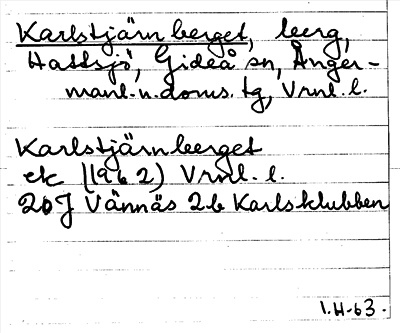 Karlstjärnberget, berg,
Hattsjö, Gideå sn, Ånger-
manl. n. doms. tg, Vrnl. l.
Karlstjärnberget
ek (1962) Vrnl. l.
20J Vännäs 2b Karlsklubben
I.H-63.